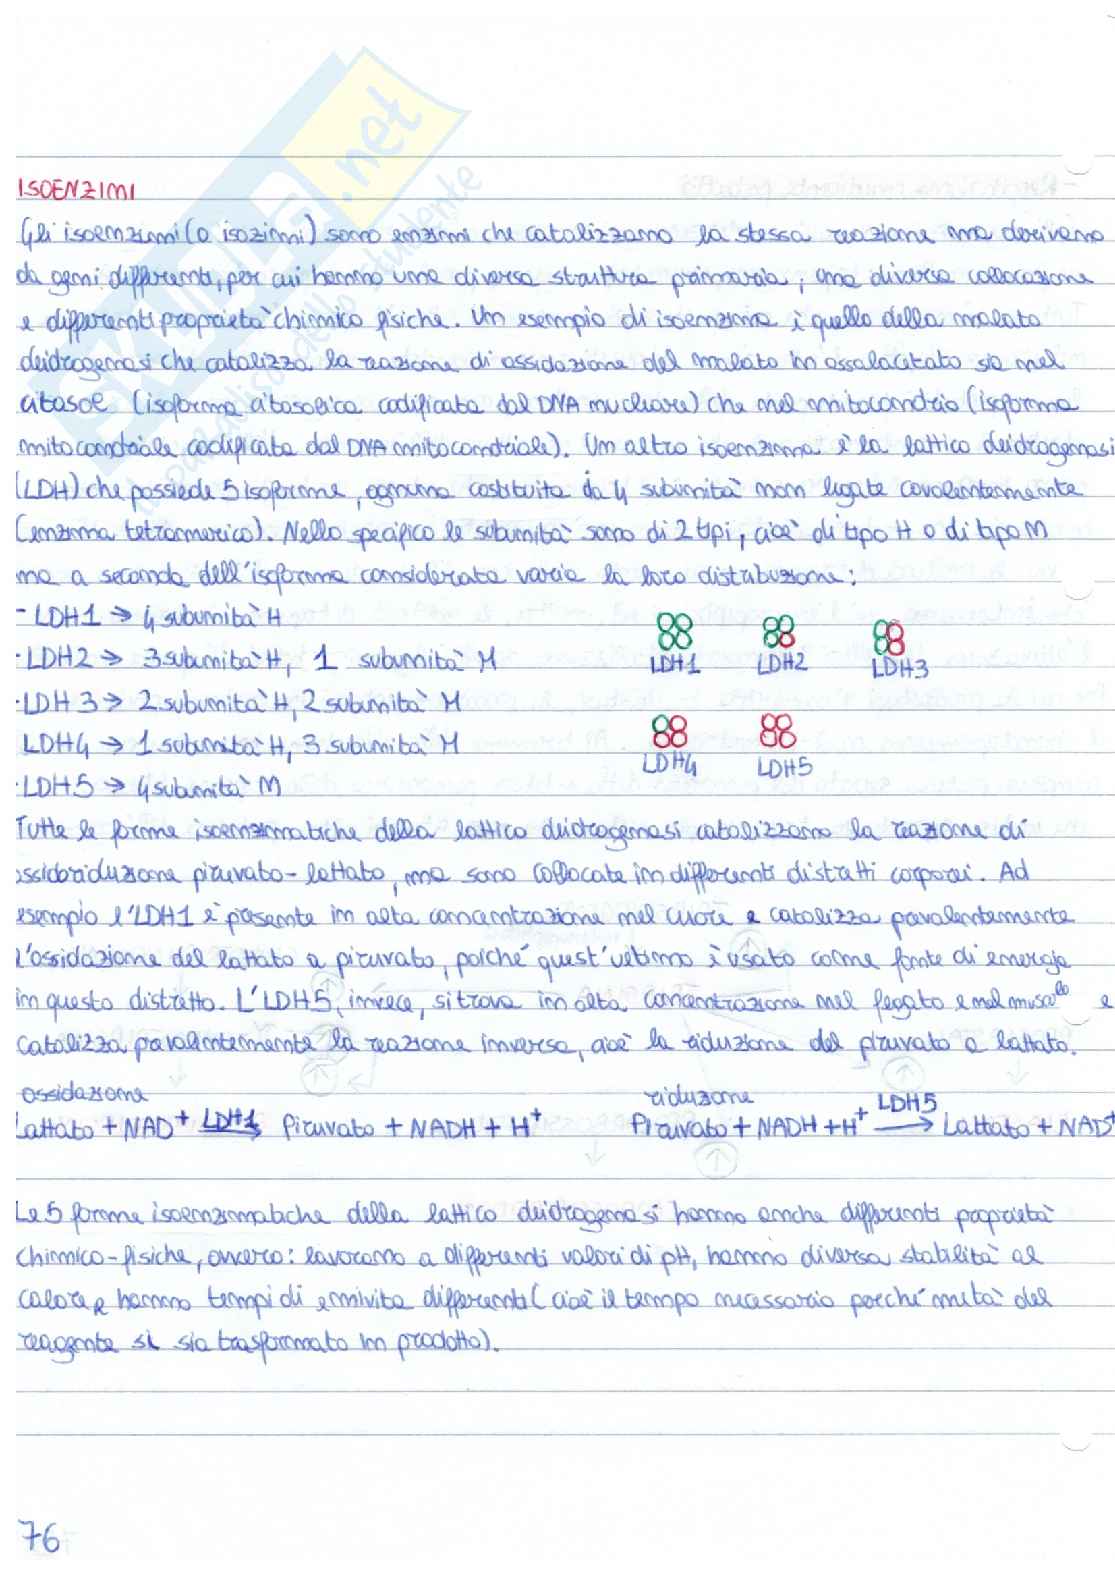 SKUOLA.net
il paradiso dello studente
ISOENZIMI
Gli isoenzimi (o isozimi) sono enzimi che catalizzano la stessa reazione ma derivano
da geni differenti, per cui hanno una diversa struttura primaria, una diversa collocazione
e differenti proprietà chimico fisiche. Un esempio di isoenzima è quello della malato
deidrogenasi che catalizza la reazione di ossidazione del malato in ossalacetato sia nel
citosol (isoforma citosolica codificata dal DNA nucleare) che nel mitocondrio (isoforma
mitocondriale codificata dal DNA mitocondriale). Un altro isoenzima è la lattico deidrogenasi
(LDH) che possiede 5 isoforme, ognuna costituita da 4 subunità non legate covalentemente
(enzima tetramerico). Nello specifico le subunità sono di 2 tipi, cioè di tipo H o di tipo M
ma a seconda dell'isoforma considerata varia la loro distribuzione:
- LDH1 → 4 subunità H
- LDH2 → 3 subunità H, 1 subunità M
- LDH3 → 2 subunità H, 2 subunità M
LDH4 → 1 subunità H, 3 subunità M
- LDH5 → 4 subunità M
LDH1 LDH2 LDH3
LDH4 LDH5
Tutte le forme isoenzimatiche della lattico deidrogenasi catalizzano la reazione di
ossidoriduzione piruvato-lattato, ma sono collocate in differenti distretti corporei. Ad
esempio l'LDH1 è presente in alta concentrazione nel cuore e catalizza prevalentemente
l'ossidazione del lattato a piruvato, poiché quest'ultimo è usato come fonte di energia
in questo distretto. L'LDH5, invece, si trova in alta concentrazione nel fegato e nel muscolo e
catalizza prevalentemente la reazione inversa, cioè la riduzione del piruvato a lattato.
ossidazione riduzione
Lattato + NAD⁺ LDH1→ Piruvato + NADH + H⁺ Piruvato + NADH + H⁺ LDH5→ Lattato + NAD⁺
Le 5 forme isoenzimatiche della lattico deidrogenasi hanno anche differenti proprietà
chimico-fisiche, ovvero: lavorano a differenti valori di pH, hanno diversa stabilità al
calore e hanno tempi di emivita differenti (cioè il tempo necessario perché metà del
reagente si sia trasformato in prodotto).
76